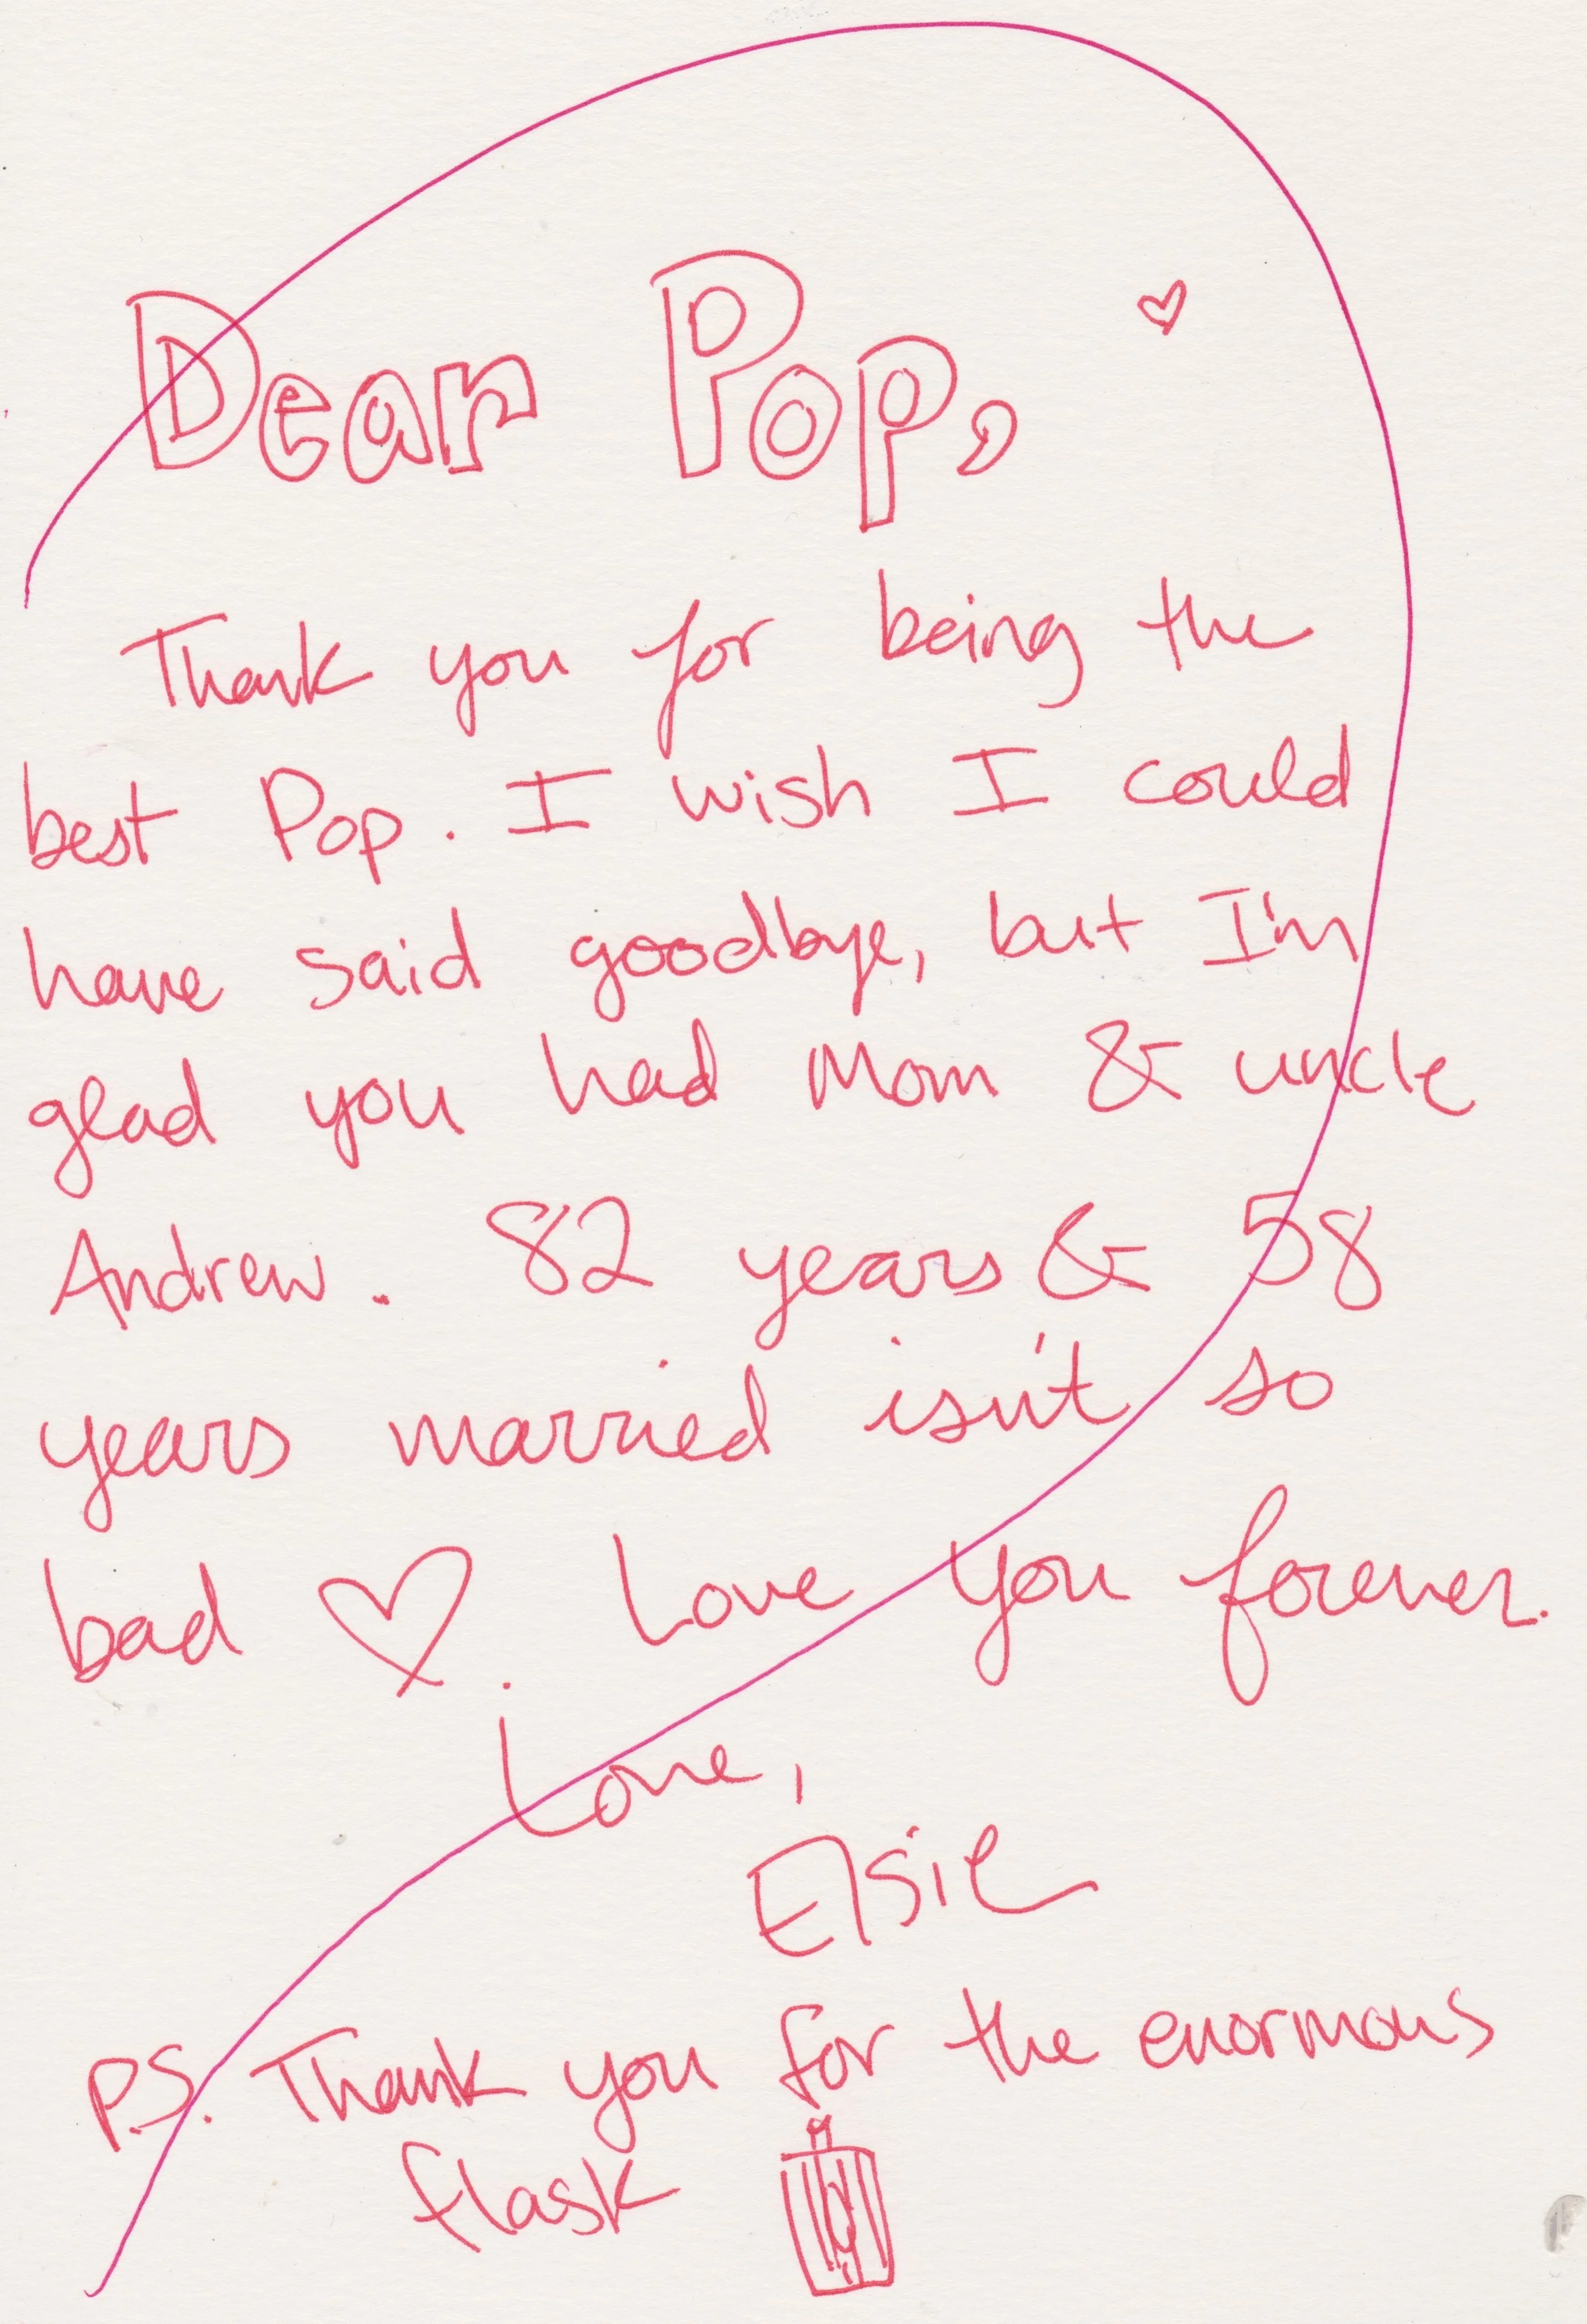 Dear Pop, ♡
Thank you for being the
best Pop. I wish I could
have said goodbye, but I'm
glad you had Mom & uncle
Andrew. 82 years & 58
years married isn't so
bad ♡. Love you forever.
Love,
Elsie
P.S. Thank you for the enormous
flask